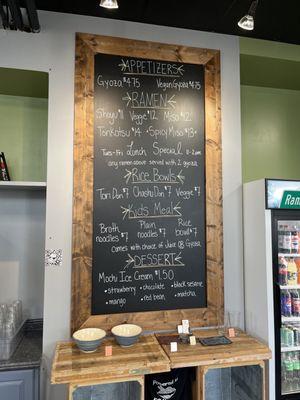 APPETIZERS
Gyoza $4.75 Vegan Gyoza 4.75
RAMEN
Shoyu $11 Veggie $12 Miso $12
Tonkotsu $14 Spicy Miso $13
Tues-Fri Lunch Special 11-2pm
any ramen above served with 2 gyoza
Rice Bowls
Tori Don $7 Chashu Don $7 Veggie $7
Kids Meal
Broth noodles $7
Plain noodles $7
Rice bowl $7
Comes with choice of Juice & Gyoza
DESSERT
Mochi Ice Cream $1.50
• strawberry • chocolate • black sesame
• mango • red bean • matcha
Powered by